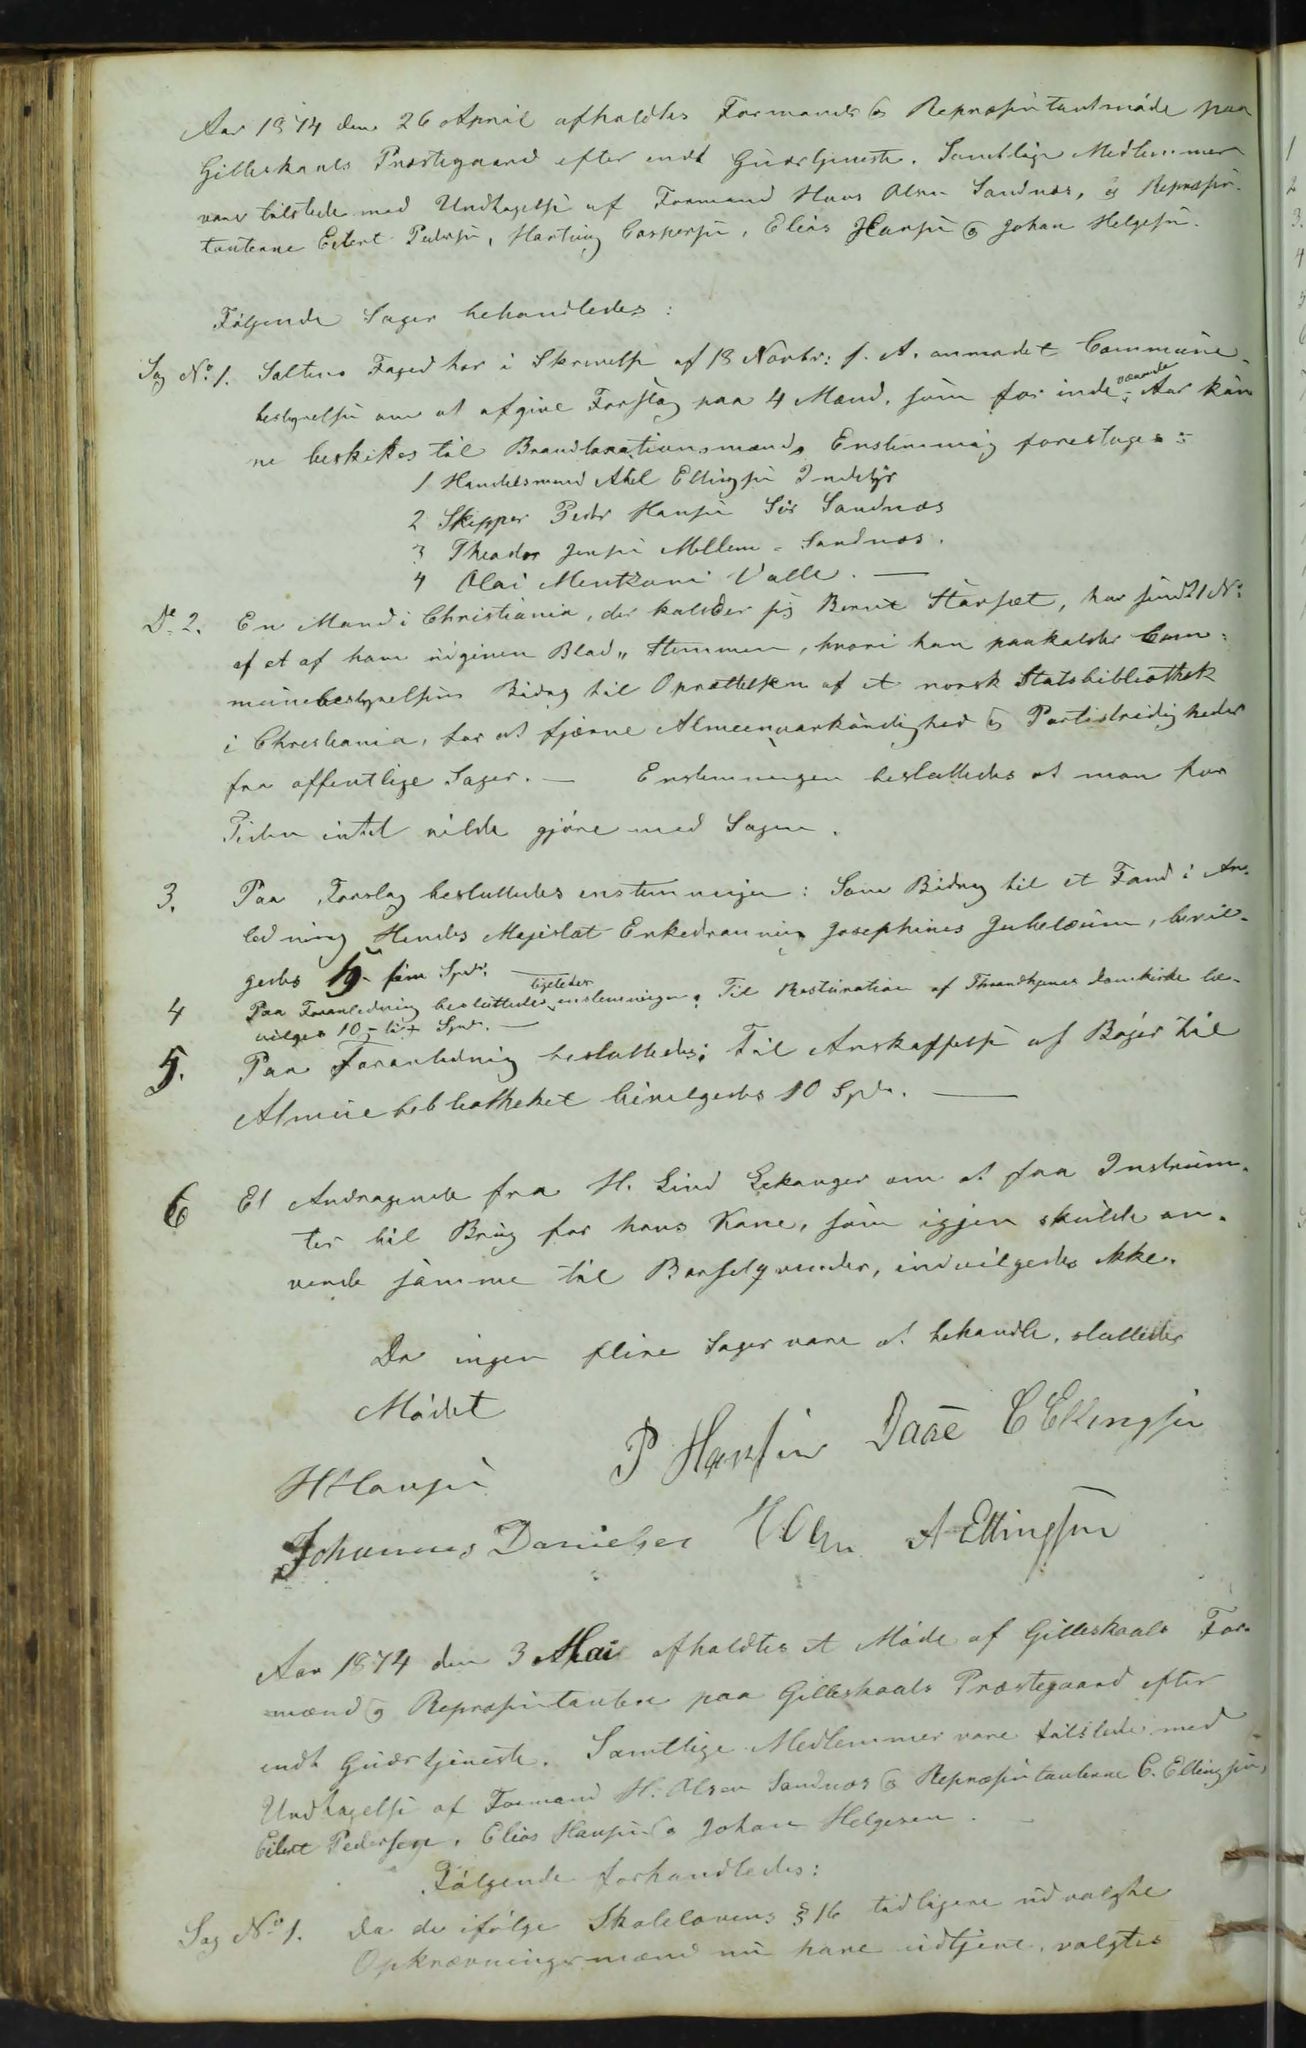 Aar 1874 den 26 April afholdtes Formands & Repræsentantmøde paa
Gilleskaals Præstegaard efter endt Gudstjeneste. Samtlige Medlemmer
vare tilstede med Undtagelse af Formand Hans Olsen Sandnæs, og Repræsen-
tanterne Eilert Pedersen, Hartvig Caspersen, Elias Hansen & Johan Helgesen.
Følgende Sager behandledes:
Sag No. 1. Saltens Foged har i Skrivelse af 18 Novbr: f. A. anmodet Commune-
bestyrelsen om at afgive Forslag paa 4 Mænd, som for inde-
værende
Aar kun
ne beskikkes til Brandtaxationsmænd. Enstemmig foresloges:
1 Handelsmand Axel Ellingsen Inndyr
2 Skipper Peder Hansen Sør Sandnæs
3 Theodor Jensen Mellem-Sandnæs.
4 Olai Mentzoni Valle. —
Do. 2. En Mand i Christiania, der kalder sig Bernt Størset, har sendt 1 No:
af et af ham udgiven Blad „Stemmen, hvori han paakalder Com-
munebestyrelsens Bidrag til Oprettelsen af et norsk Statsbibliothek
i Christiania, for at fjerne Almeenuvankundighed & Partistridigheder
fra offentlige Sager. — Enstemmigen besluttedes at man for
Tiden intet vilde gjøre med Sagen.
3. Paa Forslag besluttedes enstemmigen: Som Bidrag til et Fond i An-
ledning Hendes Majestæt Enkedronning Josephines Jubelæum, bevil-
gedes 5 – fem Spdr. —
4 Paa Foranledning besluttedes
ligeledes
enstemmigen: Til Restauration af Throndhjems Domkirke be-
vilges 10 – ti – Spdr. —
5. Paa Foranledning besluttedes: Til Anskaffelse af Bøger til
Almuebibliotheket bevilgedes 10 Spdr. —
6 Et Andragende fra H. Lind Lekanger om at faa Instrumen-
ter til Brug for hans Kone, som igjen skulde an-
vende samme til Barselqvinder, indvilgedes ikke.
Da ingen flere Sager vare at behandle, sluttedes
Mødet
P Hansen Daae C Ellingsen
H Hansen
Johannes Danielsen H Olsen A Ellingsen
Aar 1874 den 3 Mai afholdtes et Møde af Gilleskaals For-
mænd & Repræsentanter paa Gilleskaals Præstegaard efter
endt Gudstjeneste. Samtlige Medlemmer vare tilstede med
Undtagelse af Formand H. Olsen Sandnæs & Repræsentanterne C. Ellingsen,
Eilert Pedersen, Elias Hansen & Johan Helgesen. —
Følgende forhandledes:
Sag No. 1. Da de ifølge Skolelovens § 16 tidligere udvalgte
Opkrævningsmænd nu have udtjent, valgtes